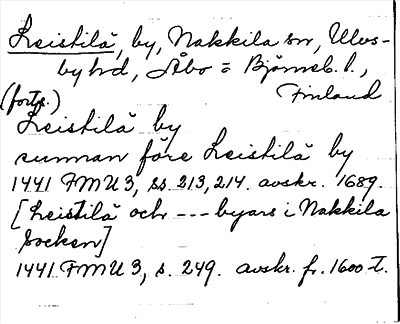 Leistilä, by, Nakkila sn, Ulvs-
by hd, Åbo o Björneb. l.,
Finland
(forts.)
Leistilä by
sunnan före Leistilä by
1441 FMU 3, ss. 213, 214. avskr. 1689.
[Leistilä och --- byars i Nakkila
Socken]
1441 FMU 3, s. 249. avskr. fr. 1600-t.